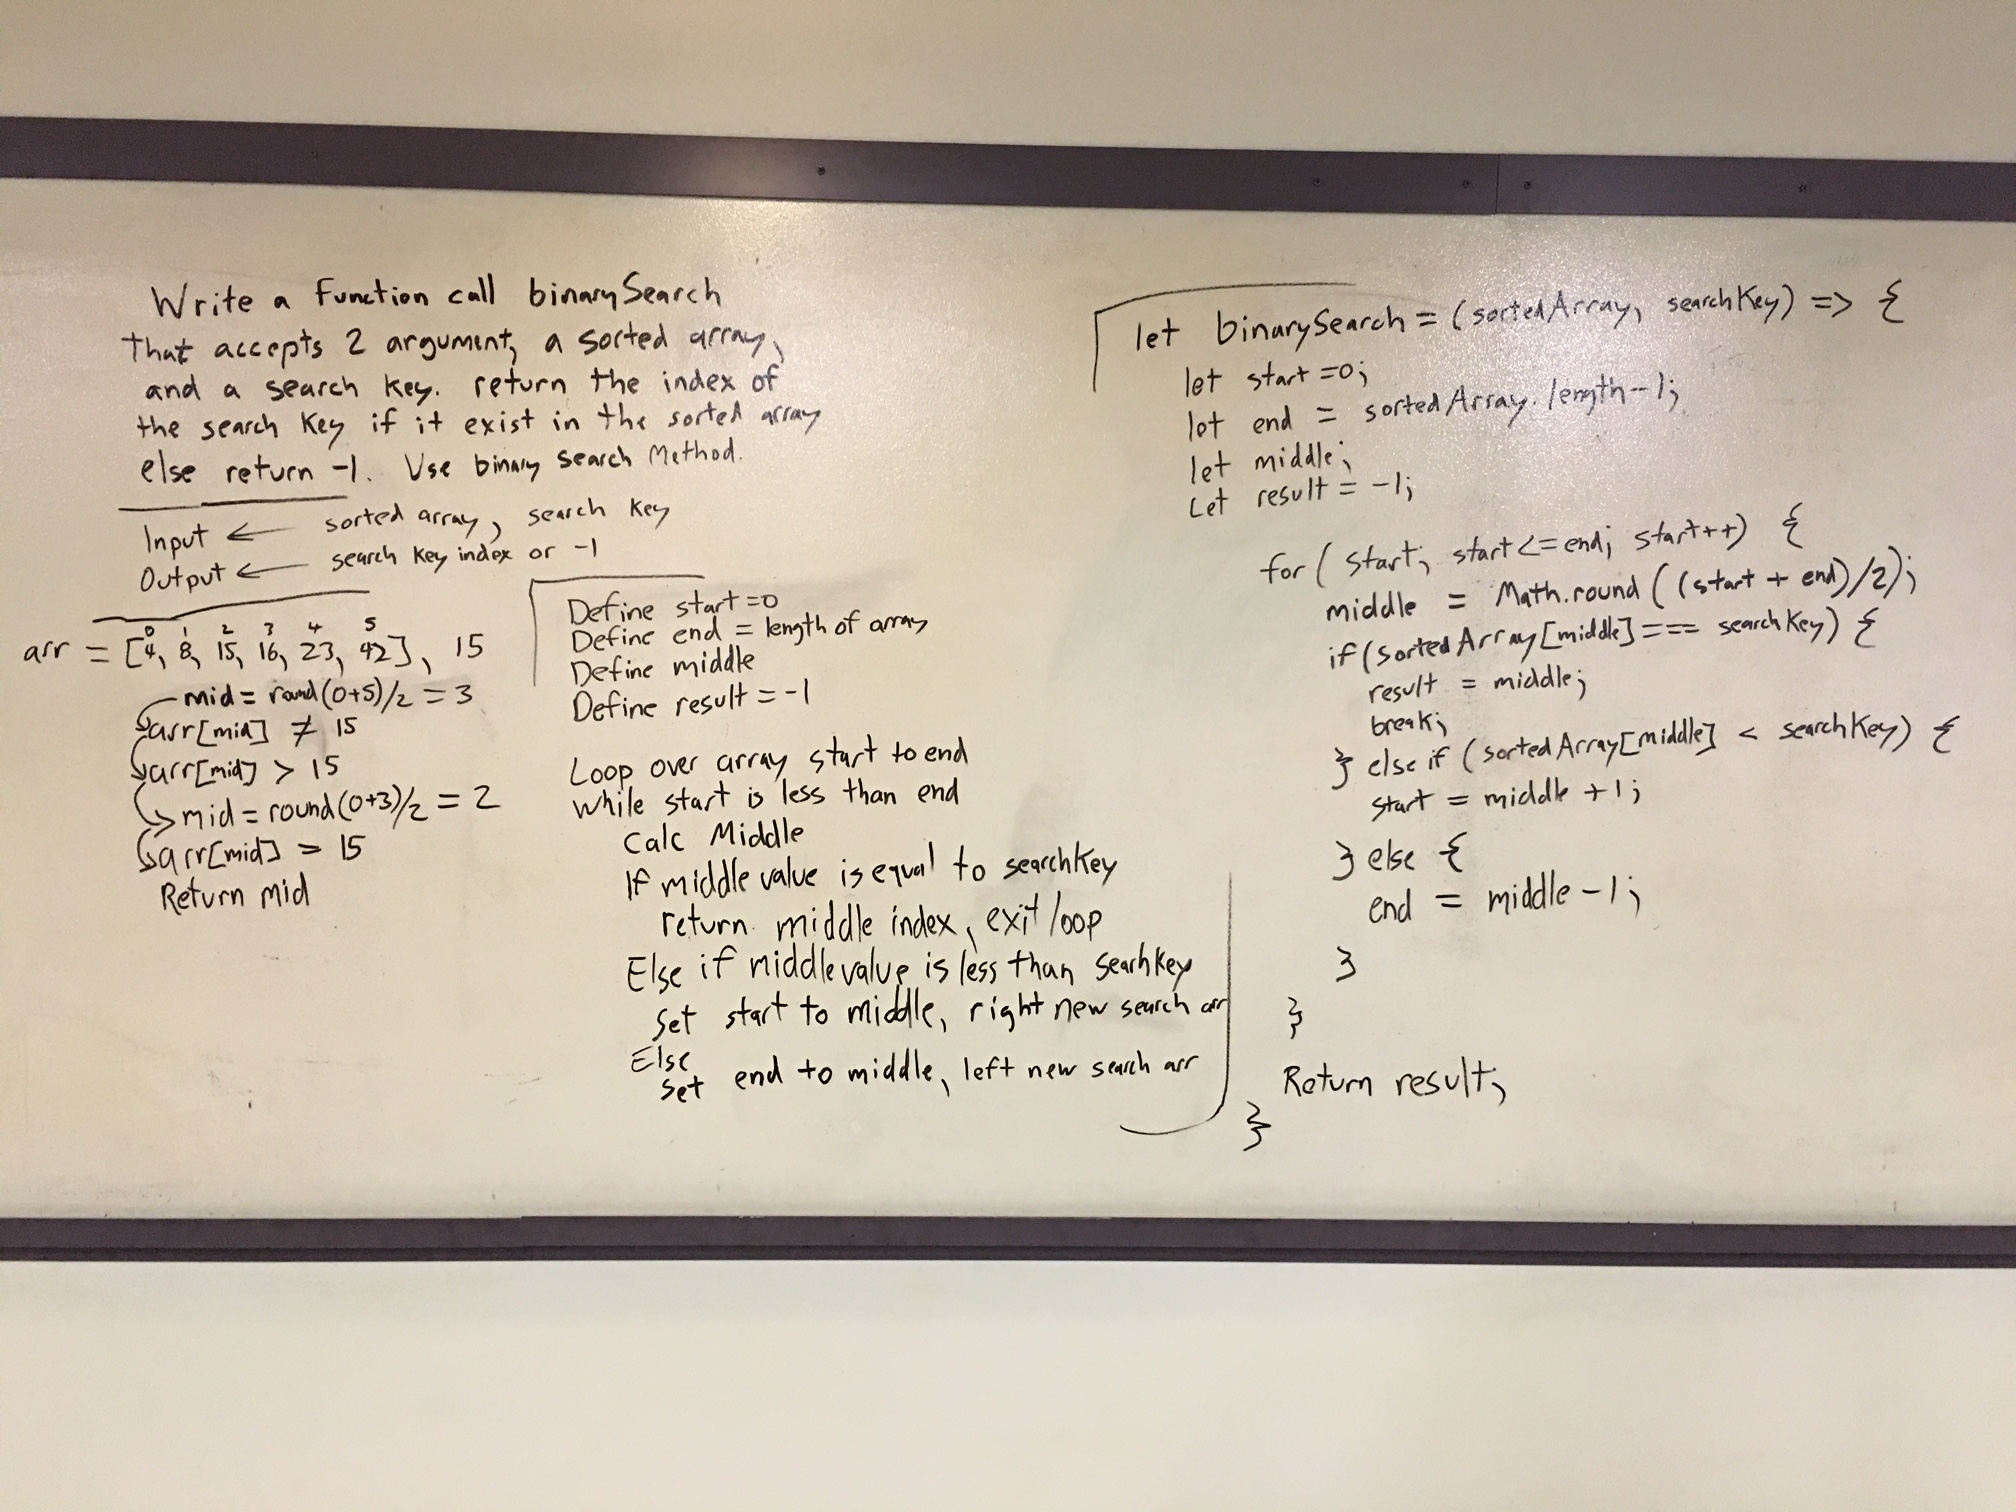 Write a function call binarySearch
that accepts 2 argument, a sorted array,
and a search key. return the index of
the search key if it exist in the sorted array
else return -1. Use binary search Method.
Input ← sorted array, search key
Output ← search key index or -1
0 1 2 3 4 5
arr = [4, 8, 15, 16, 23, 42], 15
mid = round(0+5)/2 = 3
arr[mid] ≠ 15
arr[mid] > 15
mid = round(0+3)/2 = 2
arr[mid] = 15
Return mid
Define start=0
Define end = length of array
Define middle
Define result = -1
Loop over array start to end
while start is less than end
Calc Middle
If middle value is equal to searchKey
return middle index, exit loop
Else if middle value is less than searhKey
Set start to middle, right new search arr
Else
Set end to middle, left new search arr
let binarySearch = (sortedArray, searchKey) => {
let start =0;
lot end = sortedArray.length-1;
let middle;
Let result = -1;
for ( start; start<=end; start++) {
middle = Math.round ((start + end)/2);
if(sortedArray[middle]=== searchKey) {
result = middle;
break;
} else if (sortedArray[middle] < searchKey) {
start = middle +1;
} else {
end = middle -1;
}
}
Return result;
}